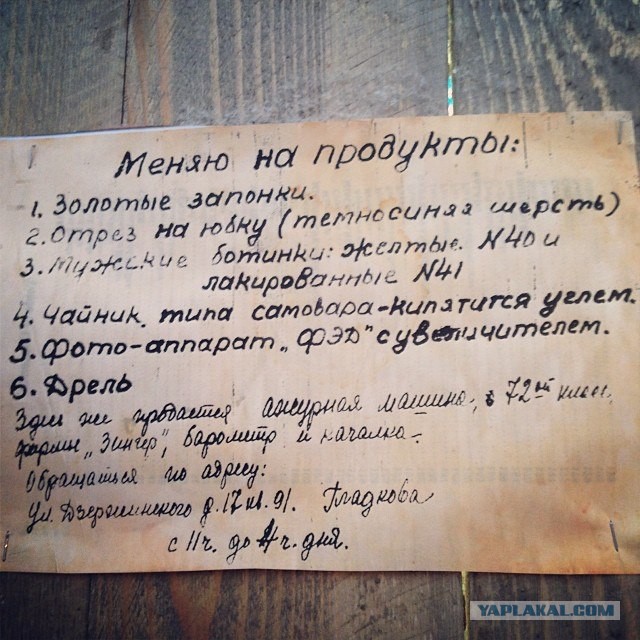 Меняю на продукты:
1. Золотые запонки.
2. Отрез на юбку (темносиняя шерсть)
3. Мужские ботинки: желтые N40 и
лакированные N41
4. Чайник типа самовара-кипятится углем.
5. Фото-аппарат „ФЭД" с увеличителем.
6. Дрель
Здесь же продается ажурная машина, 72ой класс,
фирмы „Зингер", барометр и качалка.
Обращаться по адресу:
Ул. Дзержинского д. 17 кв. 91. Гладкова
с 11ч. до 4ч. дня.
YAPLAKAL.COM